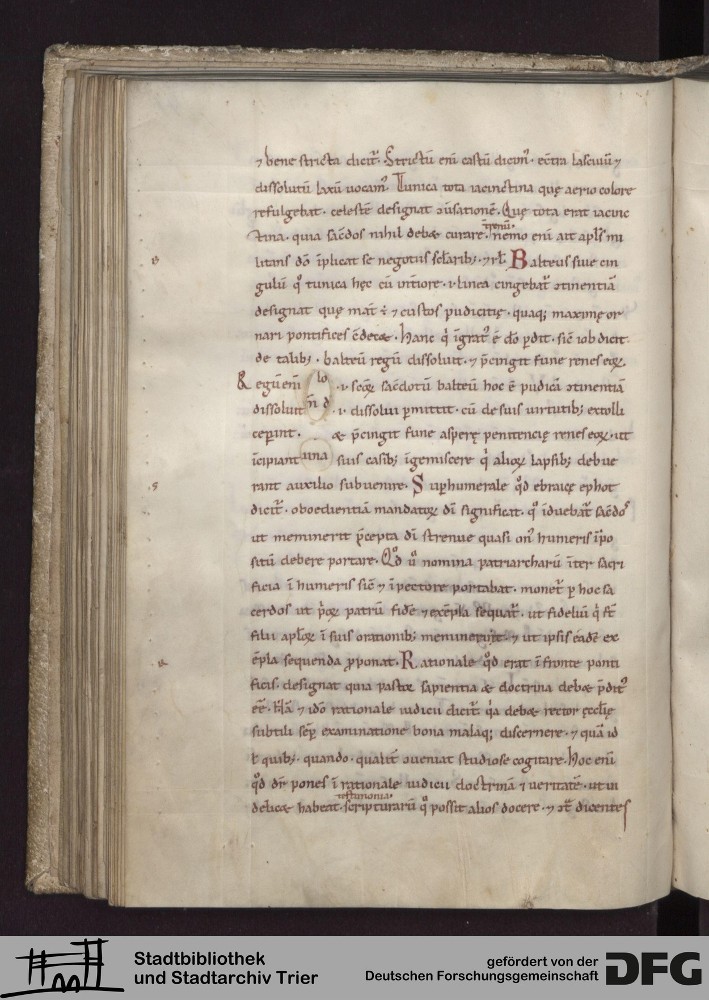 ⁊ bene stricta dicit᷑. Strictū eni castū dicim᷒. ec̄tra lasciuū ⁊
dissolutū laxū uocam᷒. Tunica tota iacinctina quę aerio colore
refulgebat. celestē designat ɔ̄uersationē. Quę tota erat iacinc
tina. quia sac̄dos nihil debet curare terrenū. nemo eni ait apl̄s mi
litans dō īplicat se negotiis sc̄larib;. ⁊ rł. Balteus siue cin
gulū q̊ tunica hęc cū int̄iore .i. linea cingebat᷑ ɔtinentiā
designat quę mat̄ ÷ ⁊ custos pudicitię. quaq; maxime or
nari pontifices c̄decet. Hanc q̇ īgrat᷒ ē dō p̄dit. sic̄ iob dicit
de talib;. balteū regū dissoluit. ⁊ p̄cingit fune renes eoꝝ.
Regū eni .i. seq̄ꝝ sac̄dotū balteū hoc ē pudicā ɔtinentiā
dissoluit dn̄s .i. dissolui p̄mittit. cū de suis uirtutib; extolli
ceperint. et p̄cingit fune asperę penitencię renes eoꝝ. ut
īcipiant una suis casib; īgemiscere q̇ alioꝝ lapsib; debue
rant auxilio subuenire. Sup̄humerale qd̄ ebraice ephot
dicit᷑. oboedientiā mandatoꝝ dī significat. q̊ īduebat᷑ sac̄dos
ut meminerit p̄cepta dī strenue quasi on᷒ humeris īpo
situ debere portare. Qd̄ ů nomina patriarcharū īter sacri
ficia ī humeris sic̄ ⁊ ī pectore portabat. monet᷑ p̄ hoc sa
cerdos ut p̓oꝝ patrū fidē ⁊ exēpla sequat᷑. ut fideliū q̇ st̄
filii apl̄oꝝ ī suis orationib; meminerint. ⁊ ut ipsis eadē ex
ēpla sequenda p̄ponat. Rationale qd̄ erat ī fronte ponti
ficis. designat quia pastor sapientia et doctrina debet p̄dit᷒
ee᷒. Nā ⁊ idō rationale iudicii dicit᷑. q̄a debet rector ęcclię
subtili sēp̄ examinatione bona malaq; discernere. ⁊ quā ід
ł quib;. quando. qualit̄ ɔueniat studiose cogitare. Hoc eni
qd̄ dr̄ pones ī rationale iudicii doctrinā ⁊ ueritatē. ut in
delicet habeat testimonia scripturarū q̊ possit alios docere. ⁊ ɔt᷑dicentes
Stadtbibliothek
und Stadtarchiv Trier
gefördert von der
Deutschen Forschungsgemeinschaft
DFG